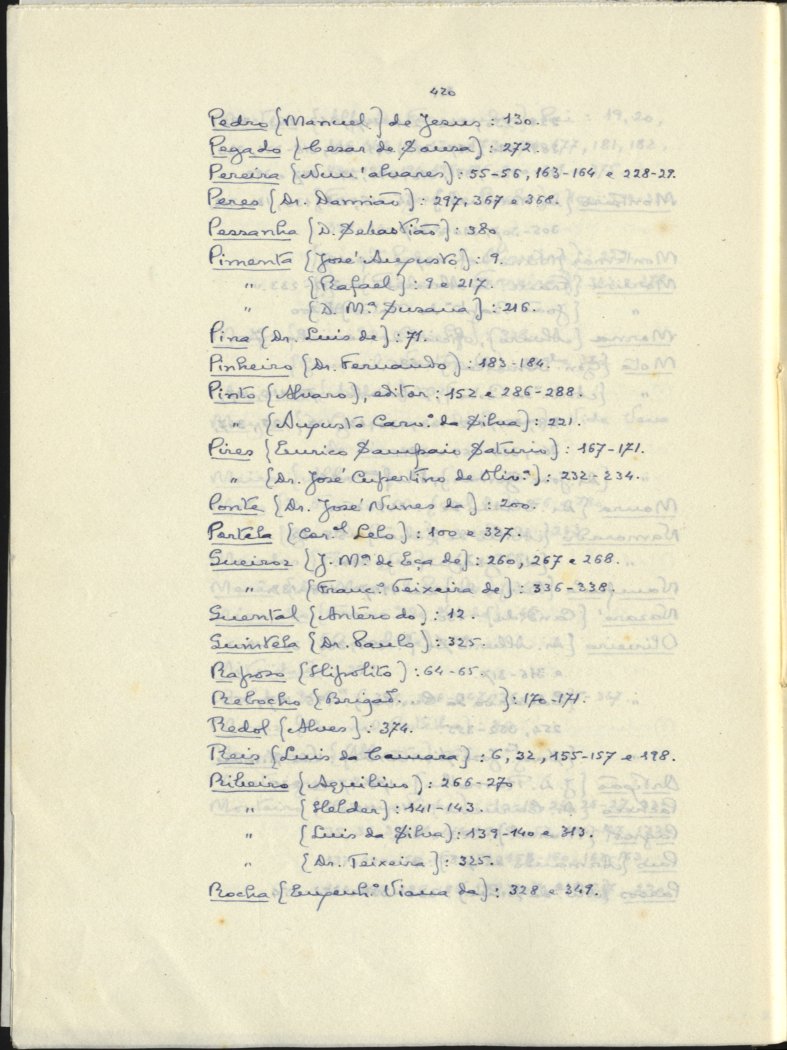 420
Pedro {Manuel} de Jesus : 130.
Pegado {Cesar de Sousa} : 272.
Pereira {Nun'alvares} : 55-56, 163-164 e 228-29.
Peres {Dr. Damião} : 297, 367 e 368.
Pessanha {D. Sebastião} : 380
Pimenta {José Augusto} : 9.
" {Rafael} : 9 e 217.
" {D. Mª Susana} : 216.
Pina {Dr. Luis de} : 71.
Pinheiro {Dr. Fernando} : 183-184.
Pinto {Alvaro}, editor : 152 e 286-288.
" {Augusto Carv.º da Silva} : 221.
Pires {Eurico Sampaio Saturio} : 167-171.
" {Dr. José Cupertino de Oliv.ª} : 232-234.
Ponte {Dr. José Nunes da} : 200.
Portela {Car.ºˢ Lelo} : 100 e 327.
Queiroz {J. Mª de Eça de} : 260, 267 e 268.
" {Franc.º Teixeira de} : 336-338.
Quental {Antero do} : 12.
Quintela {Dr. Paulo} : 325.
Raposo {Hipolito} : 64-65.
Rebocho {Brigad. } : 170-171.
Redol {Alves} : 374.
Reis {Luis da Camara} : 6, 32, 155-157 e 198.
Ribeiro {Aquilino} : 266-270
" {Helder} : 141-143.
" {Luis da Silva} : 139-140 e 313.
" {Dr. Teixeira} : 325.
Rocha {Eugenh.º Viana da} : 328 e 349.